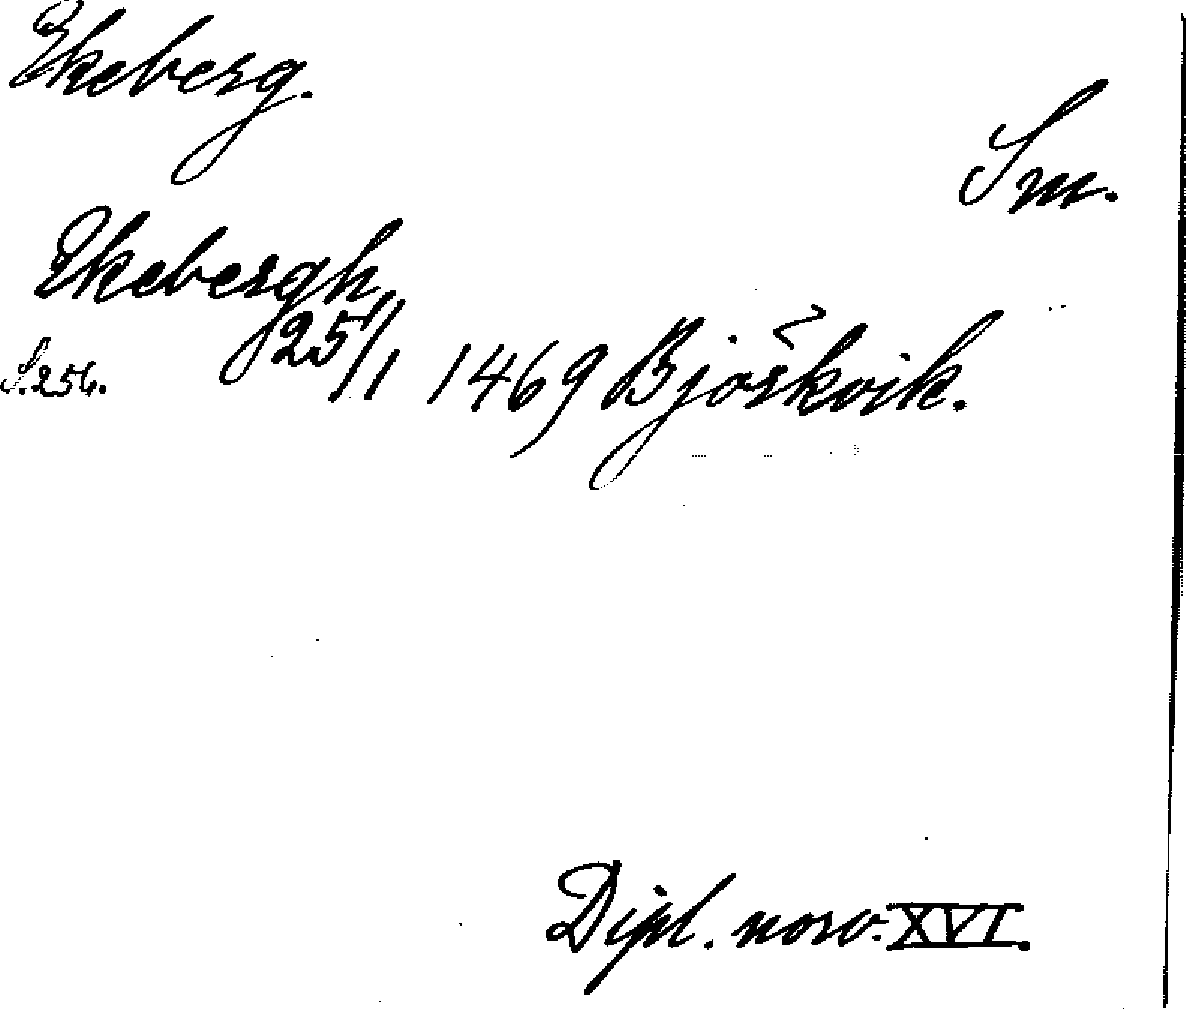 Ekeberg.
Sm.
Ekebergh
S. 256. 25/1 1469 Bjöškvik.
Dipl. norv. XVI.